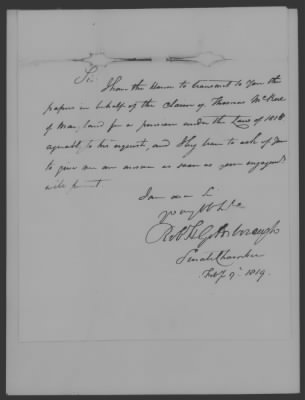 Sir
I have the Honor to transmit to you the
papers in behalf of the claim of Thomas McKeel
of Maryland for a pension under the Law of 1818
agreeably to his request, and I beg leave to ask of you
to give me an answer as soon as your engagements
will permit
I am dear Sir
yr obt Sert
Robt H Goldsborough
Senate Chamber
Feby 9th 1819.